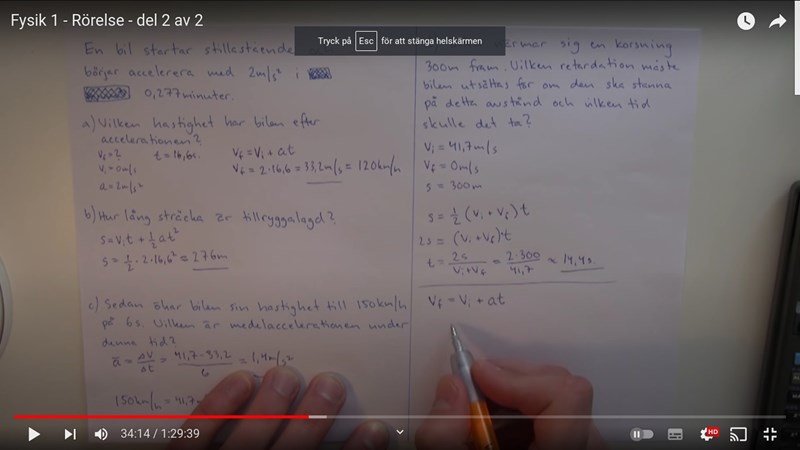 Fysik 1 - Rörelse - del 2 av 2
Tryck på Esc för att stänga helskärmen
En bil startar stillastående
börjar accelerera med 2m/s² i
0,277minuter.
a) Vilken hastighet har bilen efter
accelerationen?
Vf = ? t = 16,6s.
Vi = 0m/s
a = 2m/s²
Vf = Vi + at
Vf = 2·16,6 = 33,2m/s = 120km/h
b) Hur lång sträcka är tillryggalagd?
s = Vit + ½at²
s = ½·2·16,6² = 276m
c) Sedan ökar bilen sin hastighet till 150km/h
på 6s. Vilken är medelaccelerationen under
denna tid?
a̅ = ΔV/Δt = 41,7-33,2/6 = 1,4m/s²
150km/h = 41,7m
närmar sig en korsning
300m fram. Vilken retardation måste
bilen utsättas för om den ska stanna
på detta avstånd och vilken tid
skulle det ta?
Vi = 41,7m/s
Vf = 0m/s
s = 300m
s = ½(Vi + Vf)t
2s = (Vi + Vf)t
t = 2s/Vi+Vf = 2·300/41,7 ≈ 14,4s.
Vf = Vi + at
34:14 / 1:29:39
HD